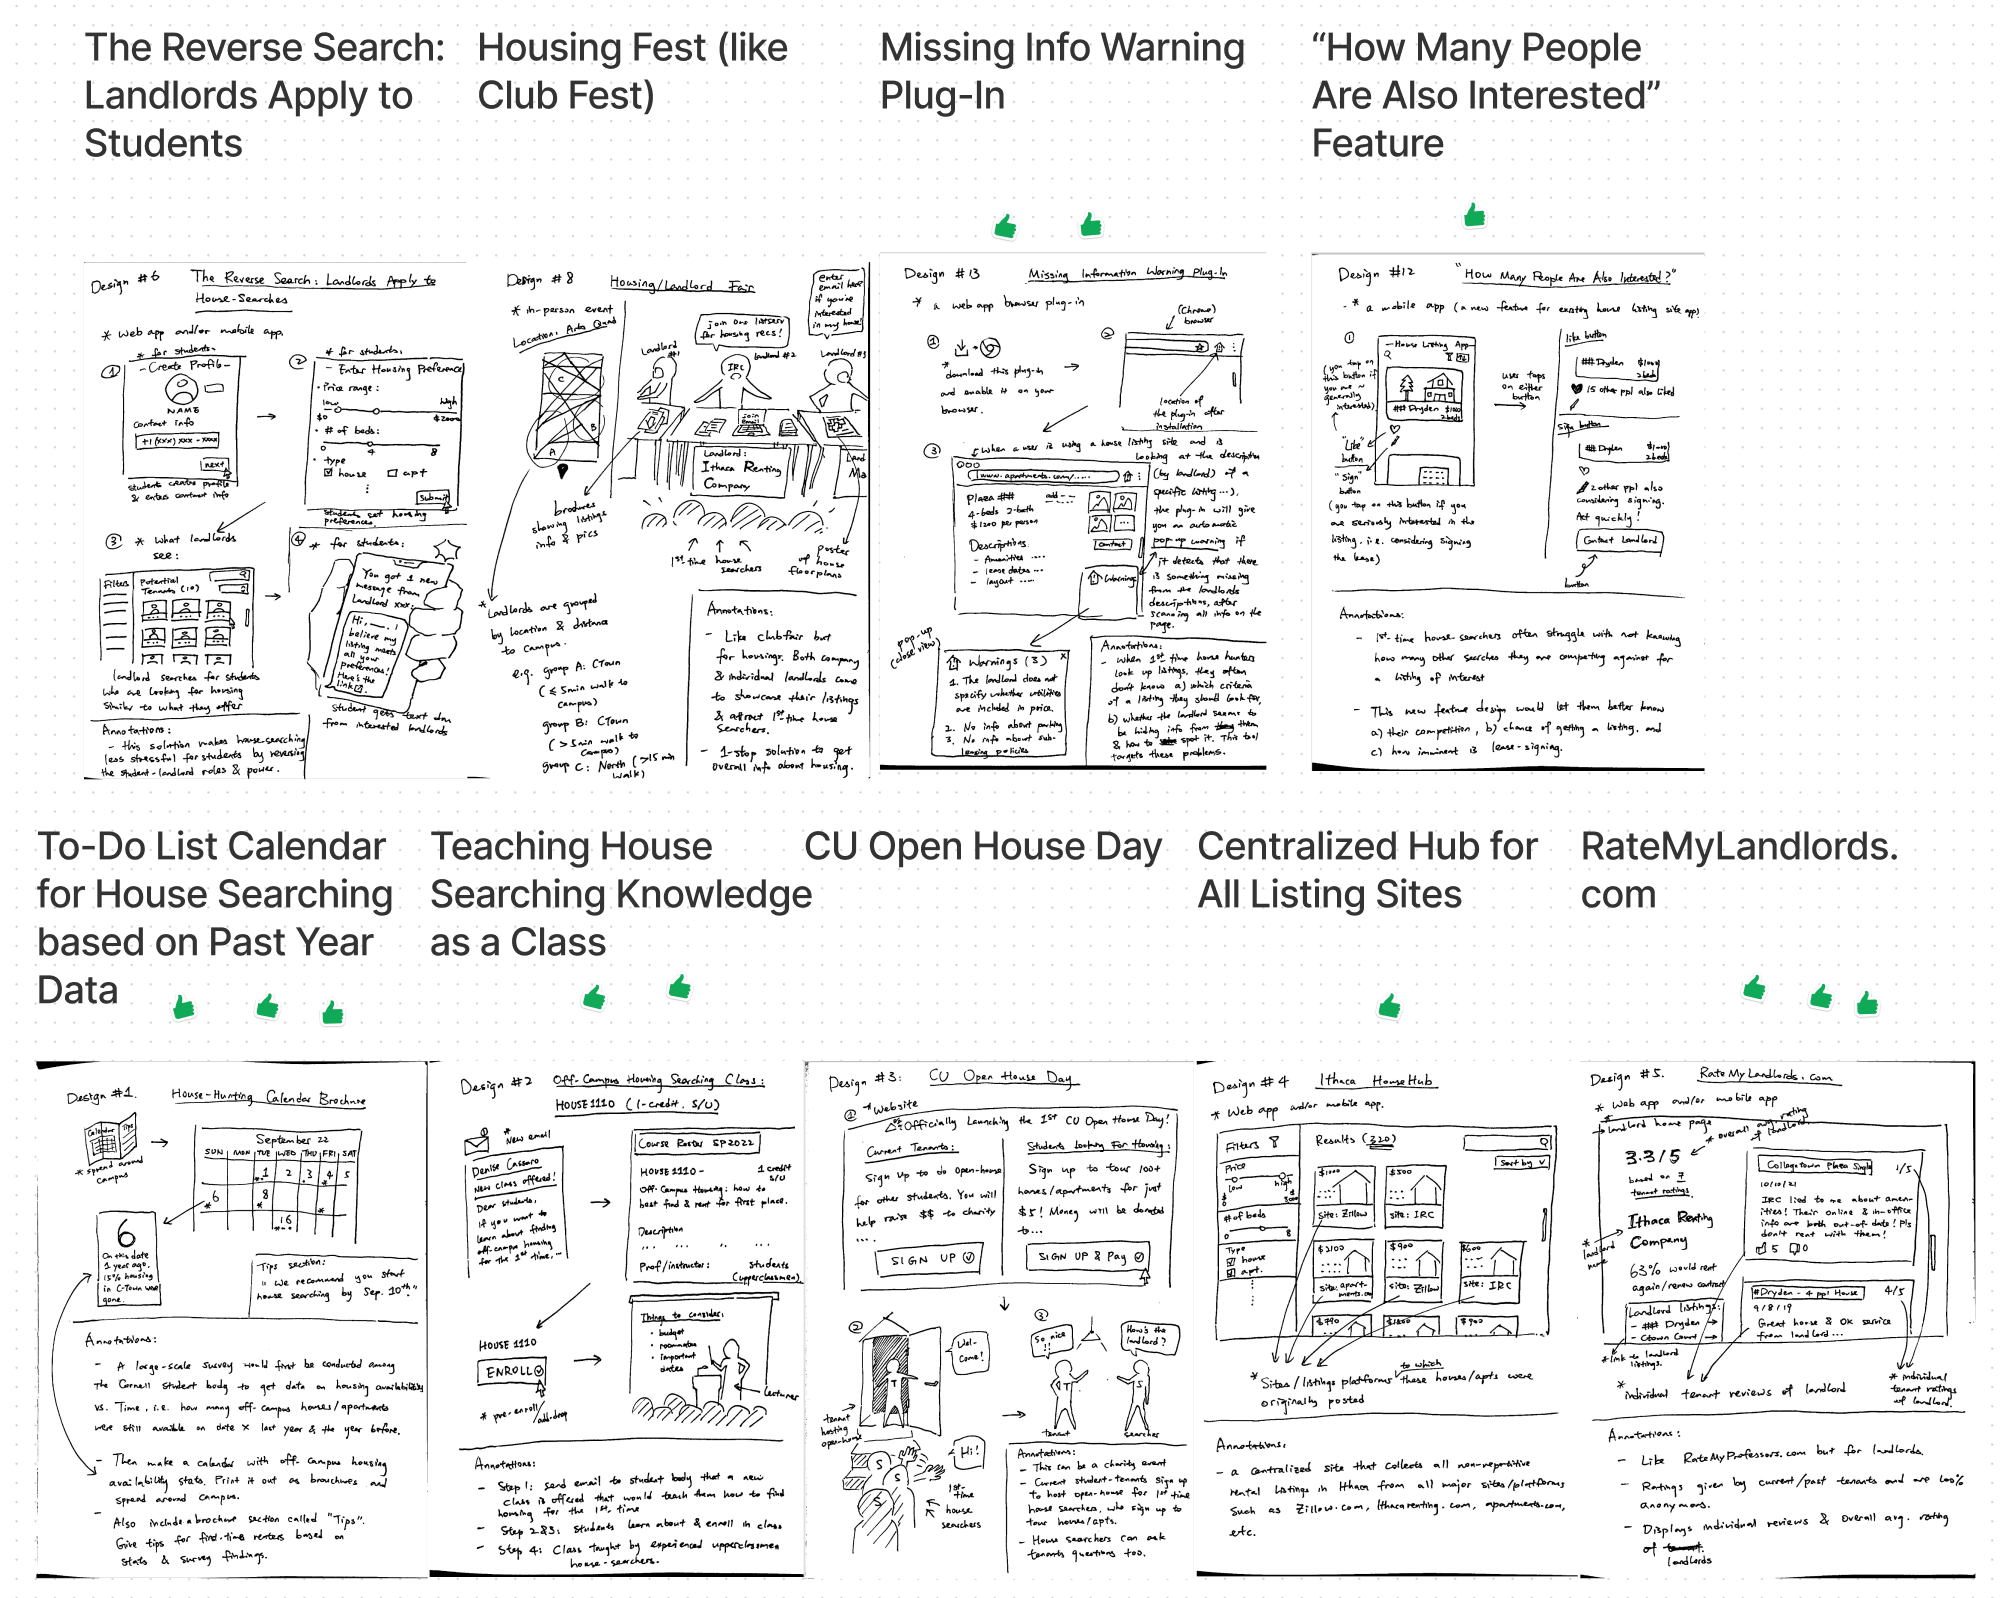 The Reverse Search:
Landlords Apply to
Students
Housing Fest (like
Club Fest)
Missing Info Warning
Plug-In
“How Many People
Are Also Interested”
Feature
Design #6 The Reverse Search: Landlords Apply to
House-Searches
* Web app and/or mobile app.
* for students.
① - Create Profile -
NAME
contact info
+1 (xxx) xxx - xxxx
next
students create profile
& enters contact info
②
* for students.
- Enter Housing Preference
• Price range:
low high
$0 $2000
• # of beds:
0 4 8
• type
house apt
Submit
students set housing
preferences.
③ * what landlords
see:
Filters
Potential
Tenants (10)
landlord searches for students
who are looking for housing
similar to what they offer
④ * for students:
You got 1 new
message from
Landlord xxx:
Hi, __, I
believe my
listing meets
all your
preferences!
Here's the
link
Student gets text dm
from interested landlords
Annotations:
- this solution makes house-searching
less stressful for students by reversing
the student-landlord roles & power.
Design #8 Housing/Landlord Fair
* in-person event
Location: Arts Quad
C
B
A
Landlord
#1
join our listserv
for housing recs!
IRC
landlord #2
enter
email here
if you're
interested
in my house!
Landlord #3
join
Landlord:
Ithaca Renting
Company
brochures
showing listings
info & pics
1st time house
searchers
poster
of house
floorplans
* Landlords are grouped
by location & distance
to campus.
e.g. group A: CTown
(≤ 5min walk to
campus)
group B: CTown
(> 5min walk to
campus)
group C: North (>15 min
walk)
Annotations:
- Like club fair but
for housings. Both company
& individual landlords come
to showcase their listings
& attract 1st-time house
searchers.
- 1-stop solution to get
overall info about housing.
Design #13 Missing Information Warning Plug-In
* a web app browser plug-in
①
* download this plug-in
and enable it on your
browser.
②
(Chrome)
browser
location of
the plug-in after
installation
③ when a user is using a house listing site and is
looking at the description
(by landlord) of a
specific listing...),
the plug-in will give
you an automatic
pop-up warning if
it detects that there
is something missing
from the landlords
descriptions, after
scanning all info on the
page.
www.apartments.com/.....
Plaza ##
4-beds 2-bath
$1200 per person
Descriptions
- Amenities ....
- lease dates ...
- layout .....
contact
Warning
pop-up
(close view)
Warnings (3) x
1. The landlord does not
specify whether utilities
are included in price.
2. No info about parking
3. No info about sub-
leasing policies
Annotations:
- When 1st time house hunters
look up listings, they often
don't know a) which criteria
of a listing they should look for,
b) whether the landlord seems to
be hiding info from them
& how to spot it. This tool
targets these problems.
Design #12 "How Many People Are Also Interested?"
* a mobile app (a new feature for existing house listing site app)
①
(you tap on
this button if
you are ~
generally
interested)
- House Listing App -
## Dryden $1000
2 beds
"Like"
button
"Sign"
button
(you tap on this button if you
are seriously interested in the
listing, i.e. considering signing
the lease)
user taps
on either
button
like button
## Dryden $1000
2 beds
15 other ppl also liked
Sign button
## Dryden $1000
2 beds
2 other ppl also
considering signing.
Act quickly!
Contact Landlord
button
Annotations:
- 1st-time house-searchers often struggle with not knowing
how many other searches they are competing against for
a listing of interest
- This new feature design would let them better know
a) their competition, b) chance of getting a listing, and
c) how imminent is lease-signing.
To-Do List Calendar
for House Searching
based on Past Year
Data
Teaching House
Searching Knowledge
as a Class
CU Open House Day
Centralized Hub for
All Listing Sites
RateMyLandlords.
com
Design #1. House-Hunting Calendar Brochure
Calendar Tips
* spend around
campus
September 22
SUN MON TUE WED THU FRI SAT
1 2 3 4 5
6 8
16
6
On this date
1 year ago,
15% housing
in C-Town were
gone.
Tips section:
" We recommend you start
house searching by Sep. 10th."
Annotations:
- A large-scale survey would first be conducted among
the Cornell student body to get data on housing availability
vs. Time, i.e. how many off-campus houses/apartments
were still available on date X last year & the year before.
- Then make a calendar with off-campus housing
availability stats. Print it out as brouchures and
spend around campus.
- Also include a brochure section called "Tips".
Give tips for first-time renters based on
stats & survey findings.
Design #2 Off-Campus Housing Searching Class:
HOUSE1110 (1-credit, S/U)
* New email
Denise Cassaro
New class offered!
Dear students,
if you want to
learn about finding
off-campus housing
for the 1st time, ...
Course Roster SP2022
HOUSE 1110 - 1 credit
S/U
Off-Campus Housing: how to
best find & rent for first place.
Description
Prof/instructor: students
(upperclassmen)
HOUSE 1110
ENROLL
* pre-enroll/
add-drop
Things to consider:
• budget
• roommates
• important
dates
Lecturer
Annotations:
- Step 1: send email to student body that a new
class is offered that would teach them how to find
housing for the 1st time
- Step 2&3: Students learn about & enroll in class
- Step 4: Class taught by experienced upperclassmen
house-searchers.
Design #3: CU Open House Day
① * Website
Officially Launching the 1st CU Open House Day!
Current Tenants:
Sign up to do open-house
for other students. You will
help raise $$ to charity
....
SIGN UP
Students Looking For Housing:
Sign up to tour 100+
homes/apartments for just
$5! Money will be donated
to...
SIGN UP & Pay
②
Wel-
come!
T
tenant
hosting
open-house
Hi!
S
S
S
1st-time
house
searchers
③
So nice
!!
How's the
landlord?
T
S
tenant
searcher
Annotations:
- This can be a charity event
- Current student-tenants sign up
to host open-house for 1st time
house searchers, who sign up to
tour homes/apts.
- House searchers can ask
tenants questions too.
Design #4 Ithaca HouseHub
* Web app and/or mobile app.
Filters
Price
low high
# of beds
0 8
Type
house
apt.
Results (320)
Sort by v
$1000
Site: Zillow
$500
Site: IRC
$2100
site: apart-
ments.com
$900
site: Zillow
$600
site: IRC
$790
$1200
$900
* Sites/listings platforms to which these houses/apts were
originally posted
Annotations:
- a centralized site that collects all non-repetitive
rental listings in Ithaca from all major sites/platforms
such as Zillow.com, Ithacarenting.com, apartments.com,
etc.
Design #5. RateMyLandlords.com
* Web app and/or mobile app
landlord home page
* overall avg. rating
of landlord
3.3/5
based on 7
tenant ratings.
Ithaca Renting
Company
* landlord
name
63% would rent
again/renew contract
Landlord listings:
- ## Dryden →
- Ctown Court →
* link to landlord
listings.
Collegetown Plaza Single 1/5
10/10/21
IRC lied to me about amen-
ities! Their online & in-office
info are both out-of date! Pls
don't rent with them!
5 0
#Dryden - 4 ppl House 4/5
9/8/19
Great house & OK service
from landlord...
* individual tenant reviews of landlord
* individual
tenant ratings
of landlord.
Annotations:
- Like RateMyProfessors.com but for landlords.
- Ratings given by current/past tenants and are 100%
anonymous.
- Displays individual reviews & overall avg. rating
of
landlords